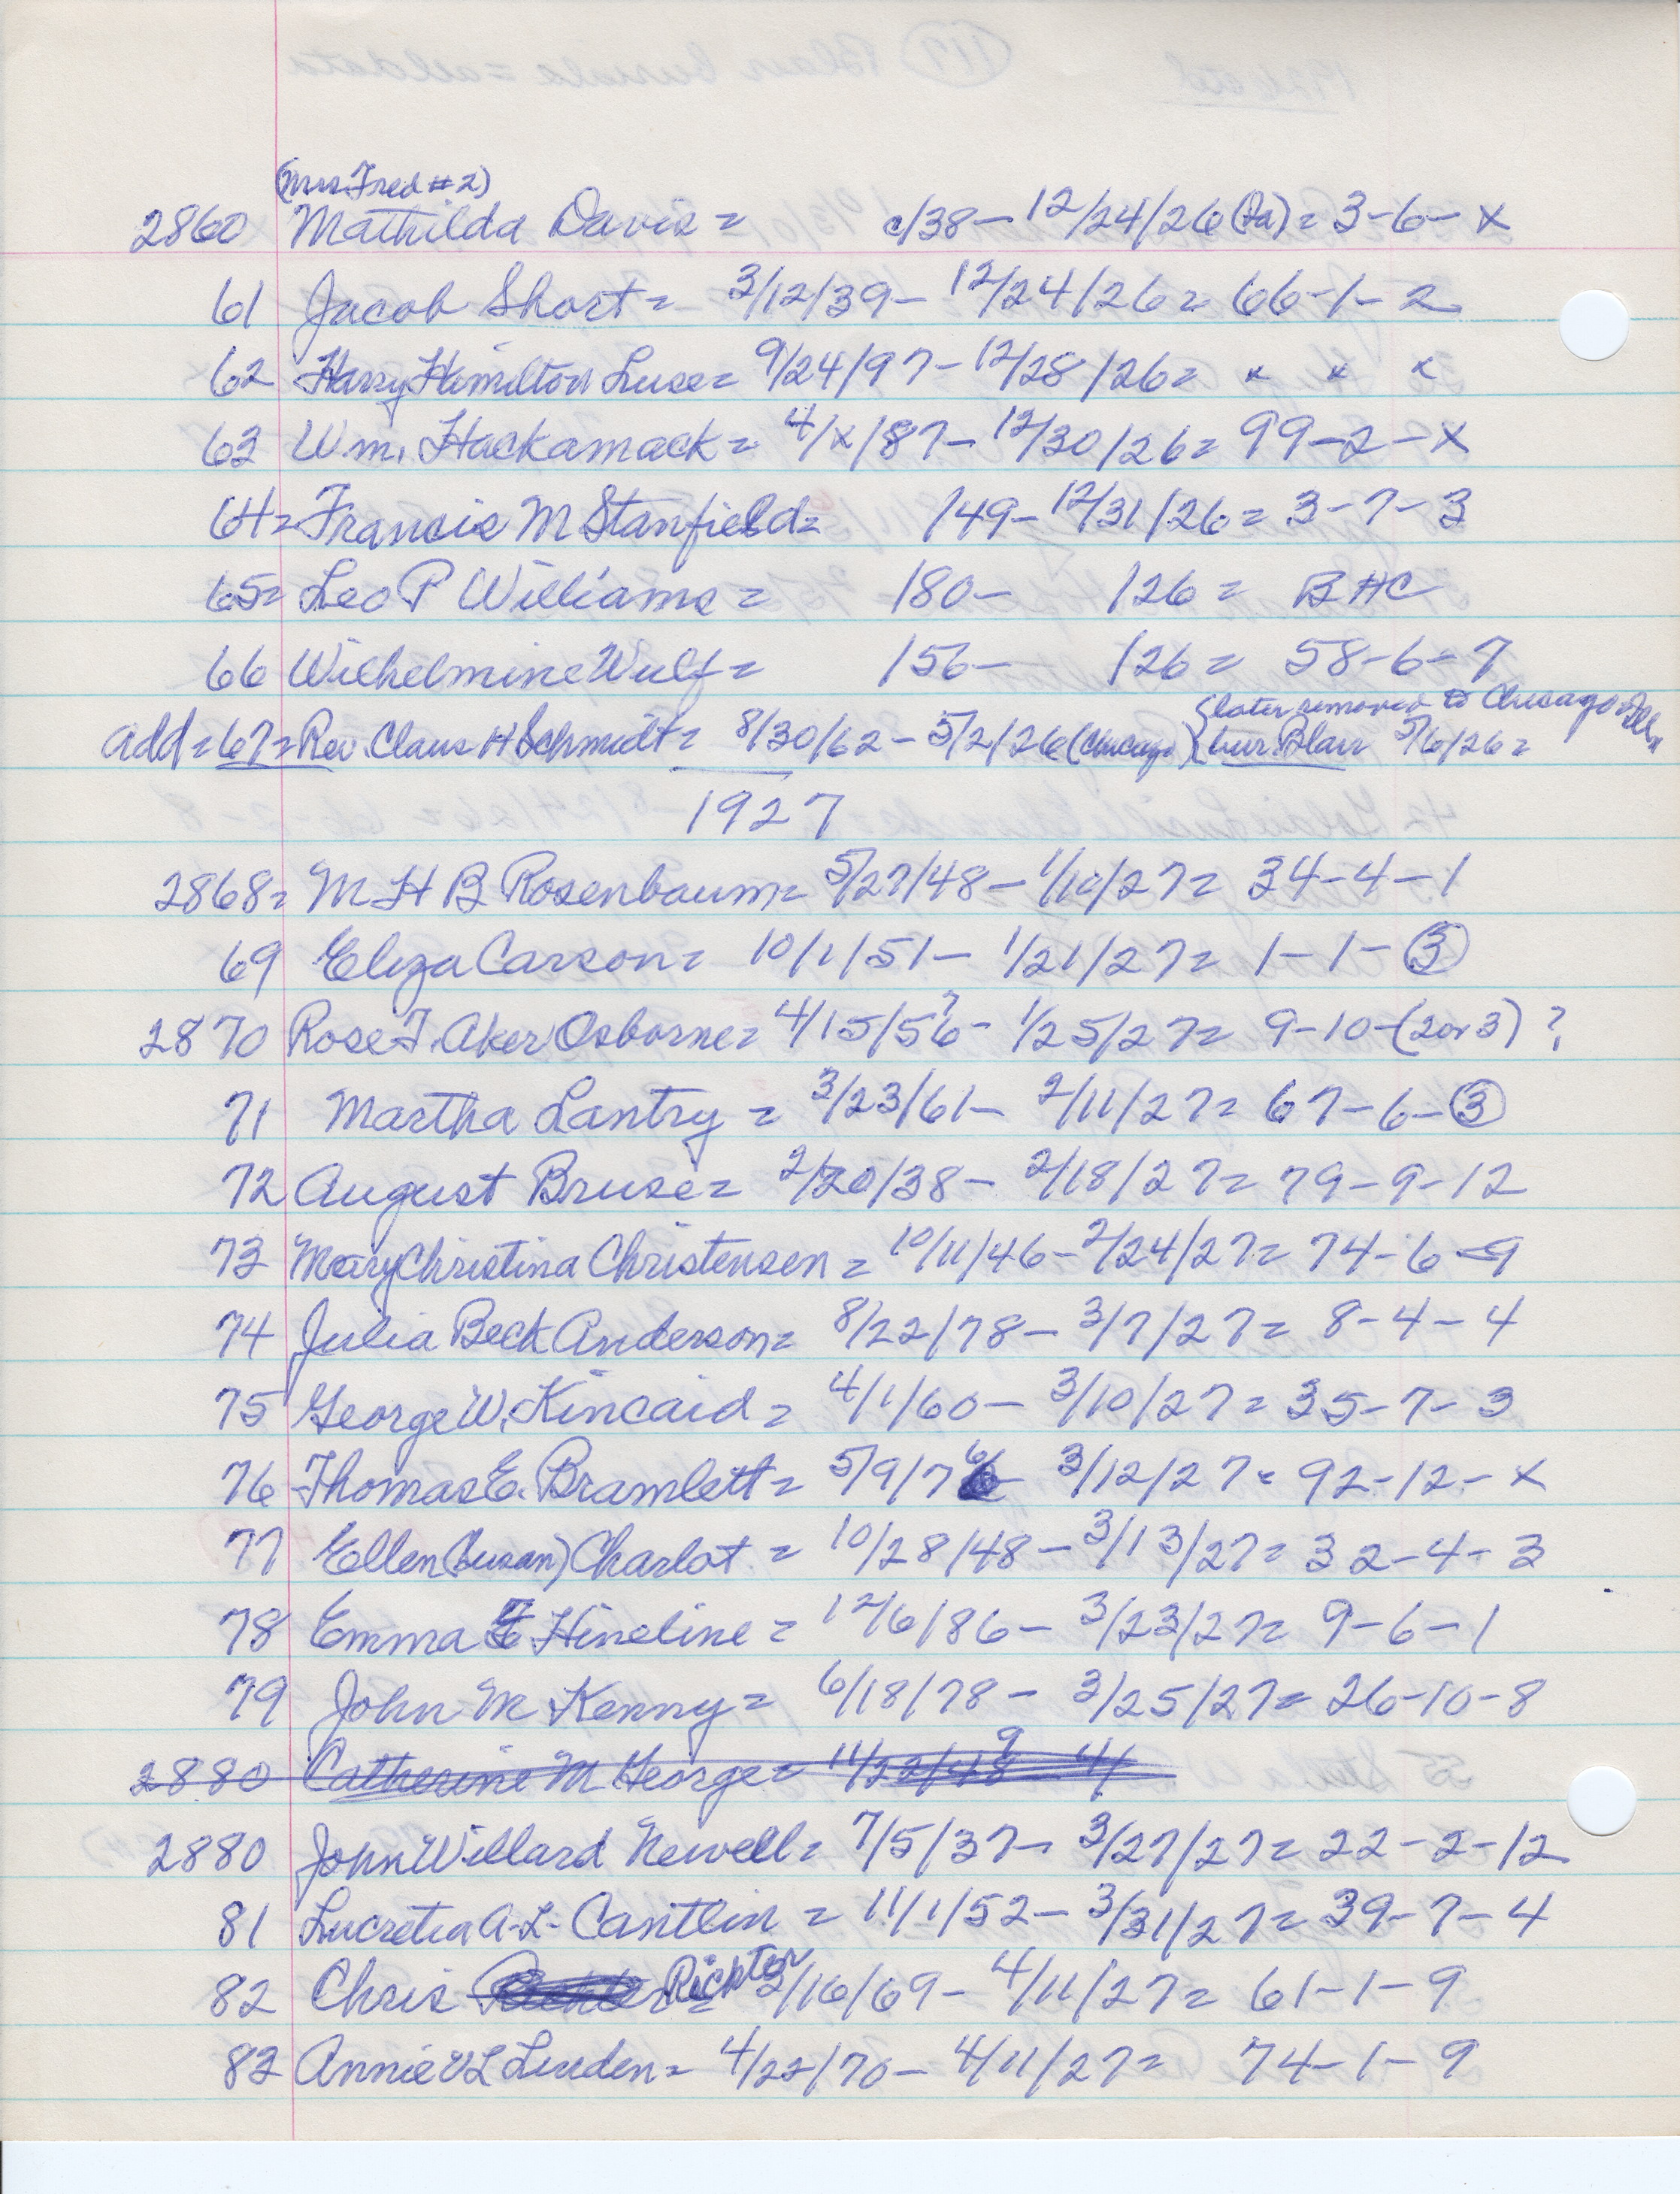 (Mrs Fred #2)
2860 Mathilda Davis = c/38 - 12/24/26 (Ia) = 3-6-x
61 Jacob Short = 3/12/39 - 12/24/26 = 66-1-2
62 Harry Hamilton Luse = 9/24/97 - 12/28/26 = x x x
63 Wm. Hackamack = 4/x/87 - 12/30/26 = 99-2-x
64 = Francis M Stanfield = /49 - 12/31/26 = 3-7-3
65 = Leo P Williams = /80 - /26 = BHC
66 Wilhelmine Wulf = /56 - /26 = 58-6-7
(later removed to Chicago Ill,
add = 67 = Rev. Claus H Schmidt = 8/30/62 - 5/2/26 (Chicago) (bur. Blair 5/6/26 =
1927
2868 = M H B Rosenbaum = 5/27/48 - 1/10/27 = 34-4-1
69 Eliza Carson = 10/1/51 - 1/21/27 = 1-1-3
2870 Rose F. Aker Osborne = 4/15/56? - 1/25/27 = 9-10-(2 or 3) ?
71 Martha Lantry = 3/23/61 - 2/11/27 = 67-6-3
72 August Bruse = 2/20/38 - 2/18/27 = 79-9-12
73 Mary Christina Christensen = 10/11/46 - 2/24/27 = 74-6-9
74 Julia Beck Anderson = 8/22/78 - 3/7/27 = 8-4-4
75 George W. Kincaid = 4/1/60 - 3/10/27 = 35-7-3
76 Thomas E. Bramlett = 5/9/76 - 3/12/27 = 92-12-x
77 Ellen (Susan) Charlot = 10/28/48 - 3/13/27 = 32-4-3
78 Emma F Hineline = 12/6/86 - 3/23/27 = 9-6-1
79 John M Kenny = 6/18/78 - 3/25/27 = 26-10-8
2880 Catherine M George = 11/22/48 9 - 4/
2880 John Willard Newell = 7/5/37 - 3/27/27 = 22-2-12
81 Lucretia A-L- Cantlin = 11/1/52 - 3/31/27 = 39-7-4
82 Chris Richter = 2/16/69 - 4/11/27 = 61-1-9
83 Annie V L Linden = 4/22/70 - 4/11/27 = 74-1-9